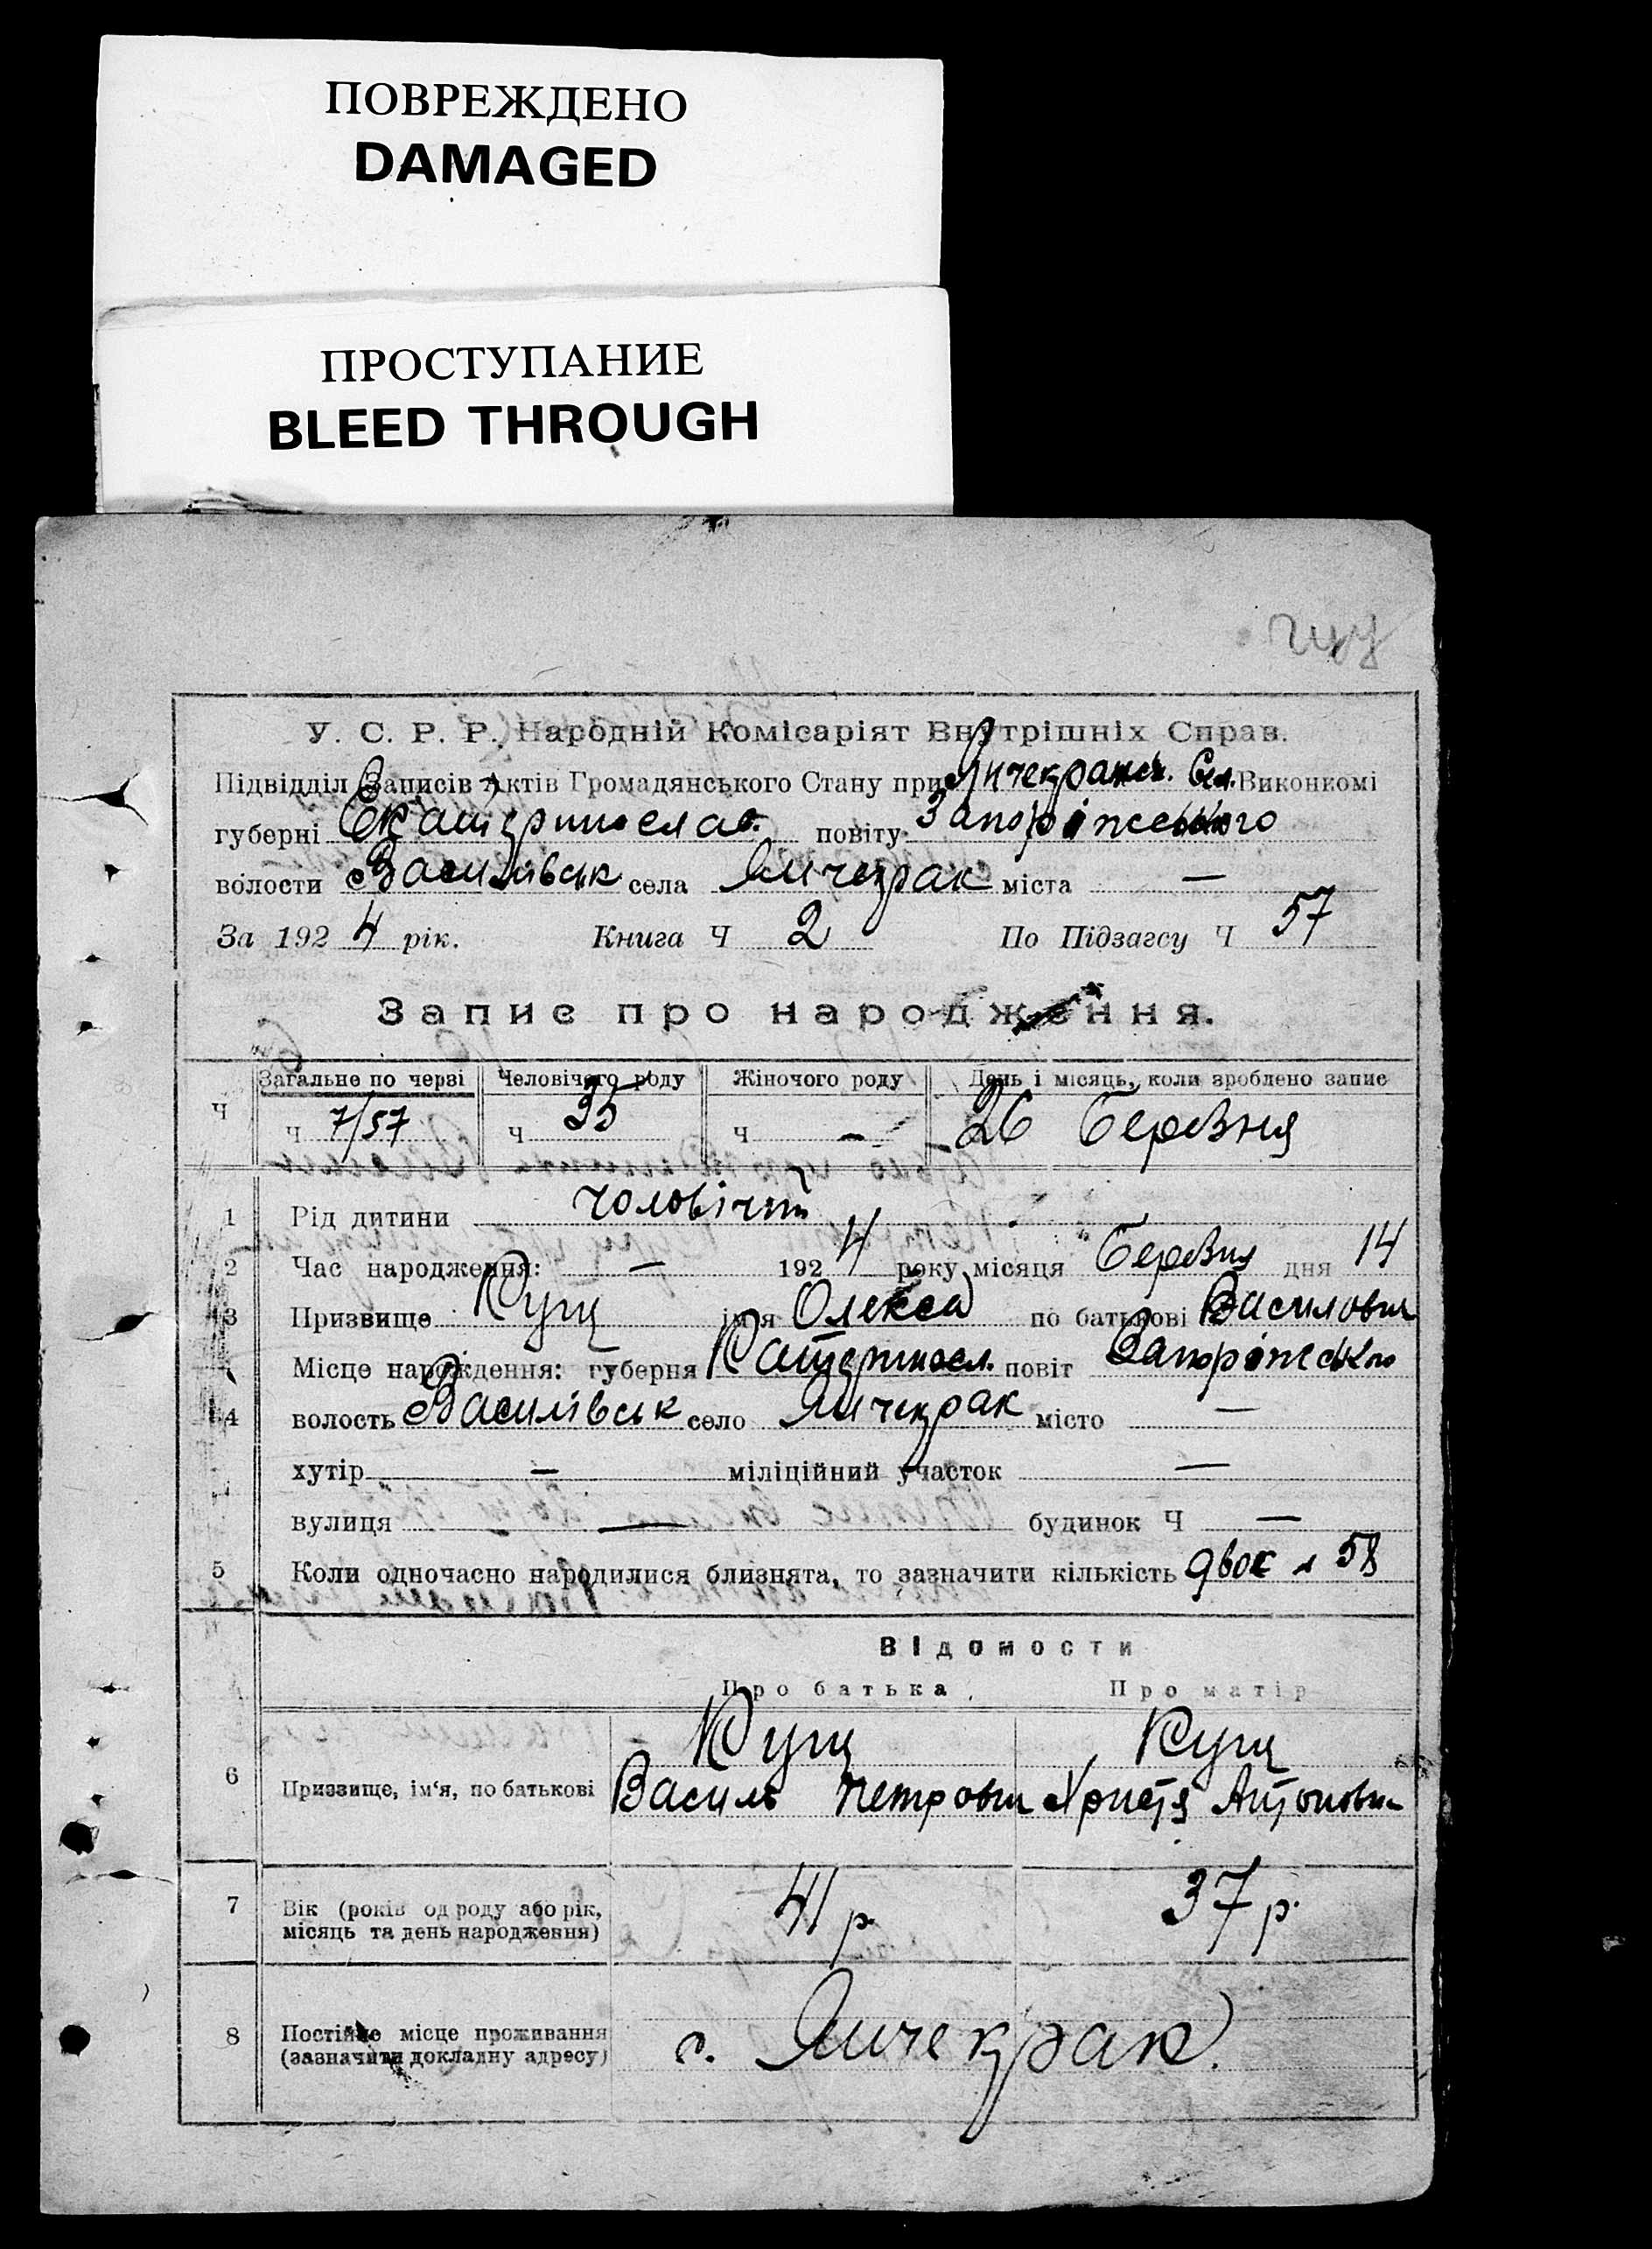 ПОВРЕЖДЕНО
DAMAGED
ПРОСТУПАНИЕ
BLEED THROUGH
У. С. Р. Р. Народній Комісаріят Внутрішніх Справ.
Підвідділ Записів Актів Громадянського Стану при Янчекранск. Сел. Виконкомі
губерні Екатеринослав. повіту Запоріжського
волости Василівськ села Янчекрак міста —
За 1924 рік. Книга Ч 2 По Підзагсу Ч 57
Запис про народження.
Ч Загальне по черзі Человічого роду Жіночого роду День і місяць, коли зроблено запис
Ч 7/57 Ч 35 Ч — 26 Березня
1 Рід дитини чоловічий
2 Час народження: — 1924 року місяця Березня дня 14
3 Призвище Кущ ім'я Олекса по батькові Василович
Місце нарождення: губерня Катериносл. повіт Запоріжського
4 волость Василівськ село Янчекрак місто —
хутір — міліційний участок —
вулиця — будинок Ч —
5 Коли одночасно народилися близнята, то зазначити кількість двоє 58
Відомости
Про батька Про матір
Кущ Кущ
6 Призвище, ім'я, по батькові Василь Петрович Христя Антоновна
7 Вік (років од роду або рік, 41 р. 37 р.
місяць та день народження)
8 Постійне місце проживання с. Янчекрак.
(зазначити докладну адресу)